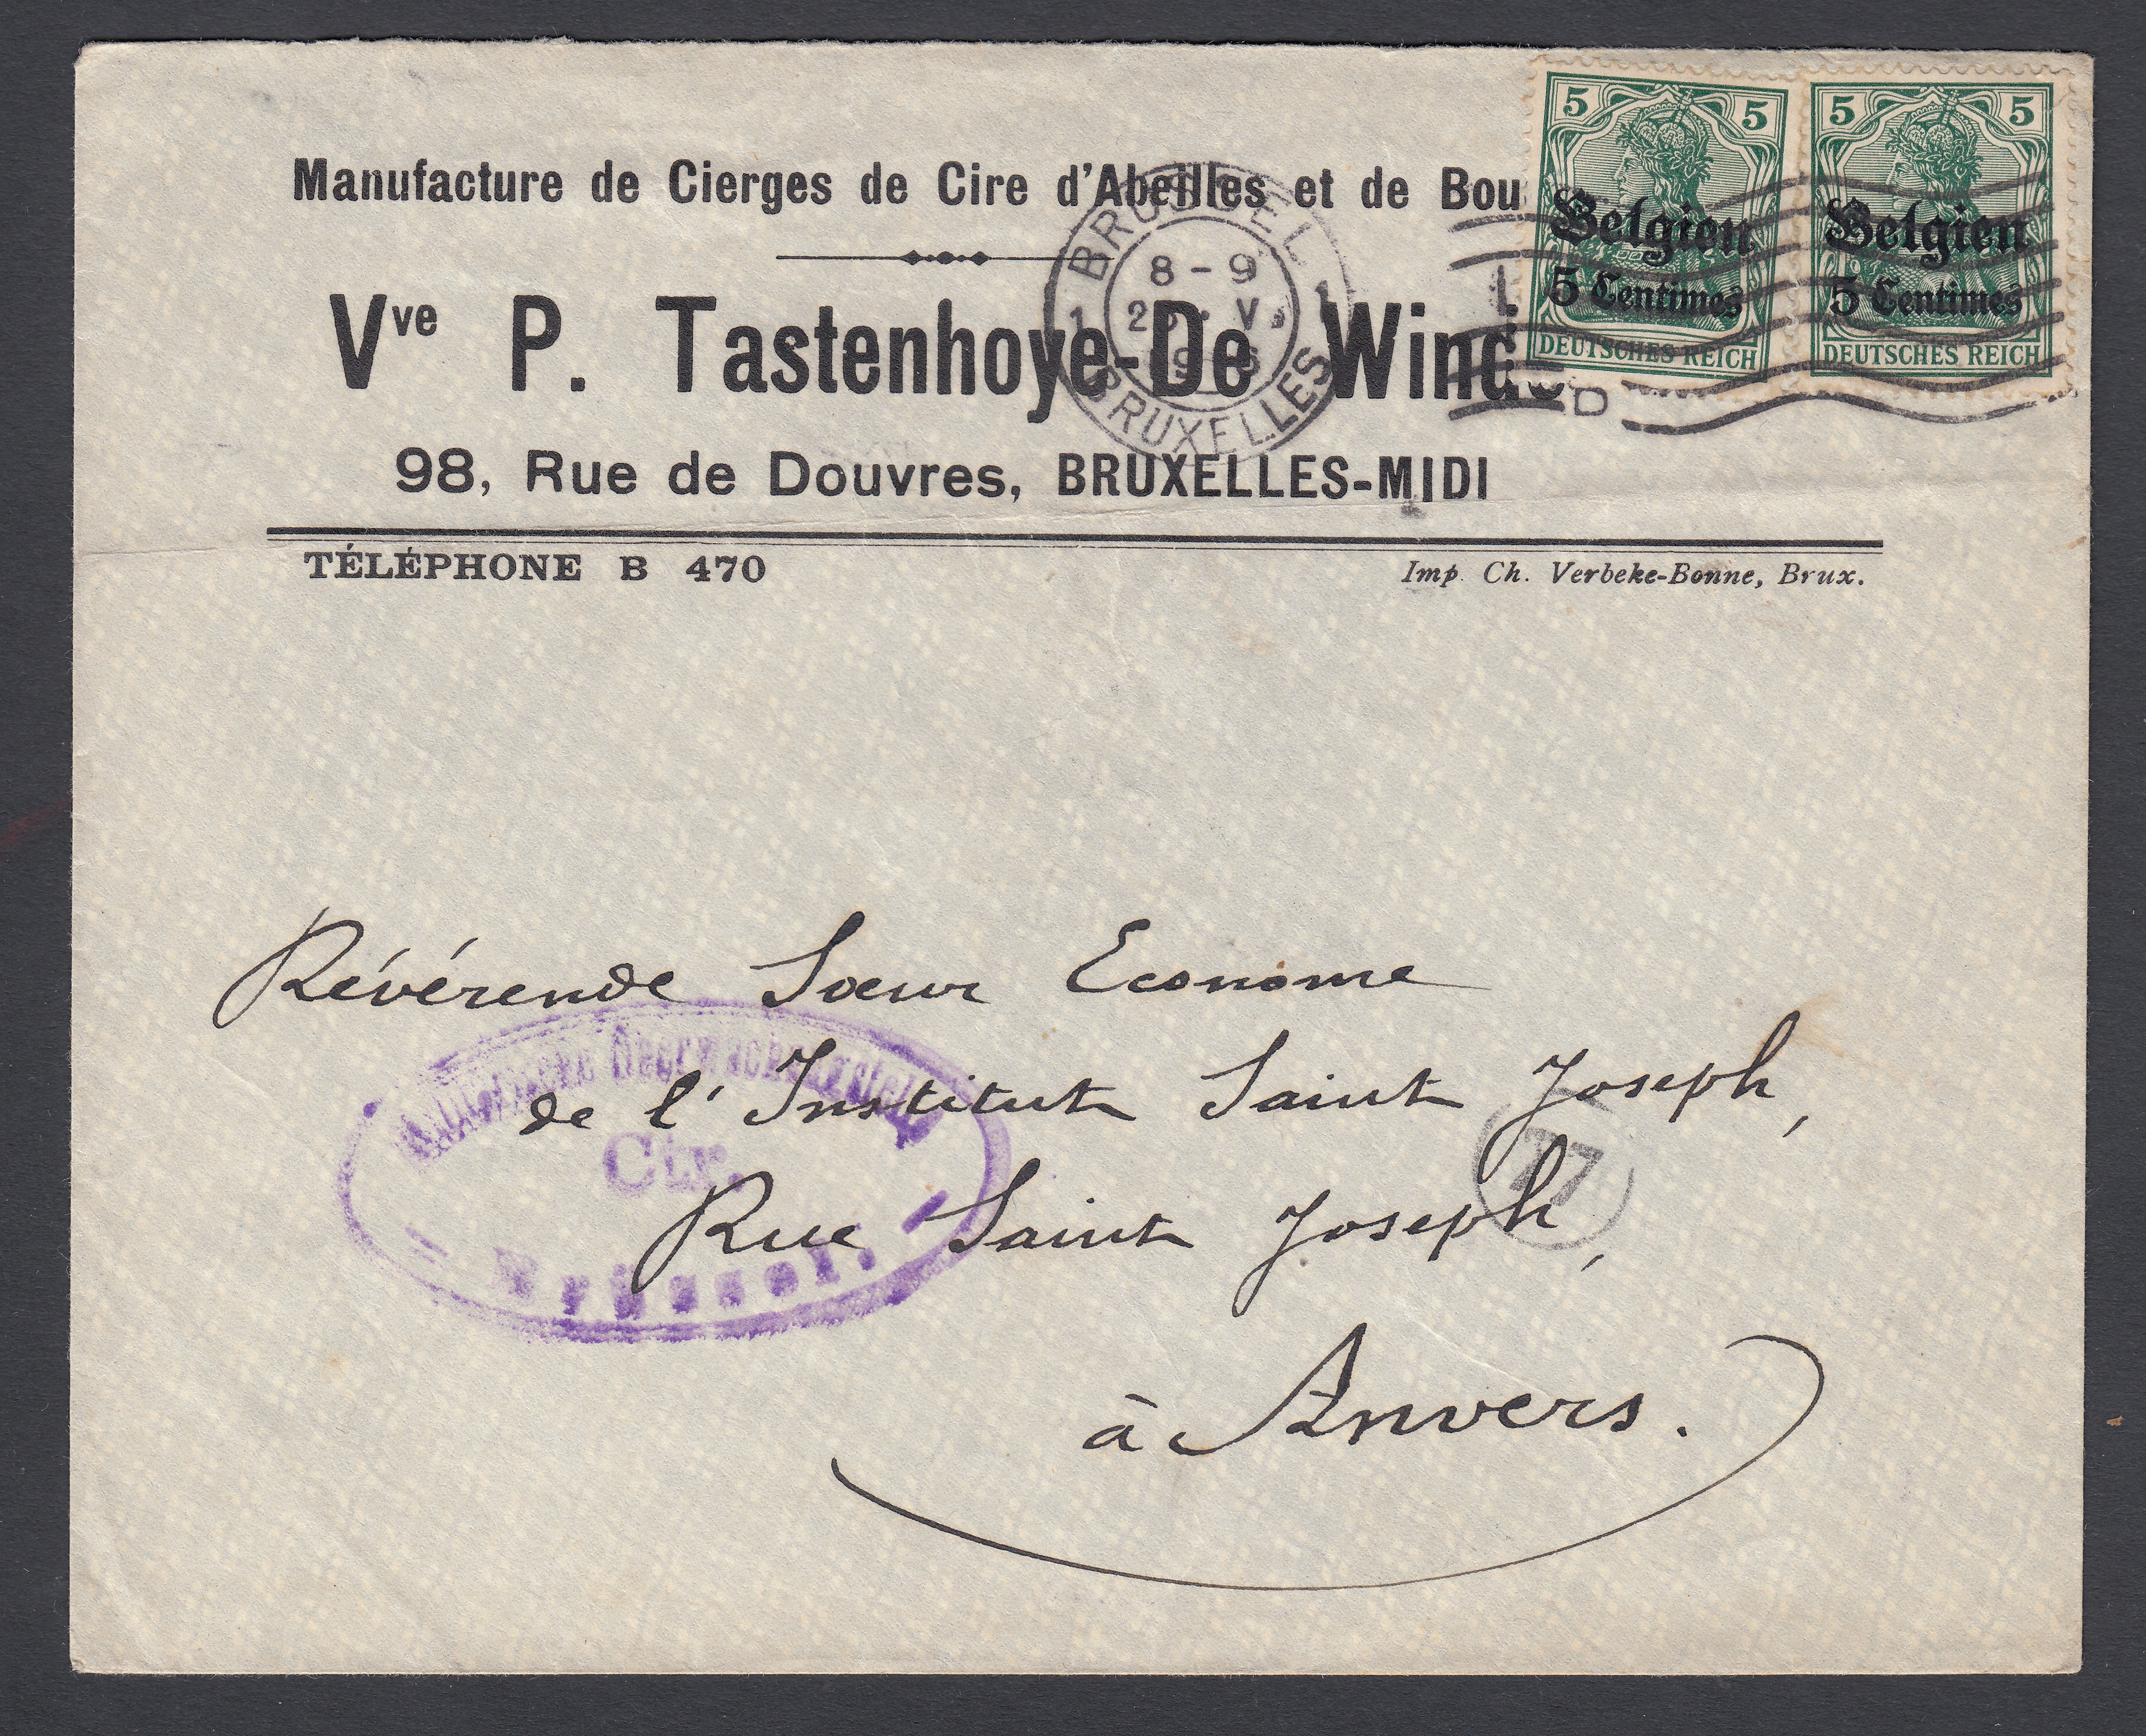 Manufacture de Cierges de Cire d'Abeilles et de Bou
Vve P. Tastenhoye-De Winde
98, Rue de Douvres, BRUXELLES-MIDI
TÉLÉPHONE B 470
Imp. Ch. Verbeke-Bonne, Brux.
5 5
Belgien
5 Centimes
DEUTSCHES REICH
5 5
Belgien
5 Centimes
DEUTSCHES REICH
BRÜSSEL
8-9
1 1
BRUXELLES
Révérende Sœur Econome
de l'Institut Saint Joseph,
Rue Saint Joseph,
à Anvers.
Ctr.
Brüssel.